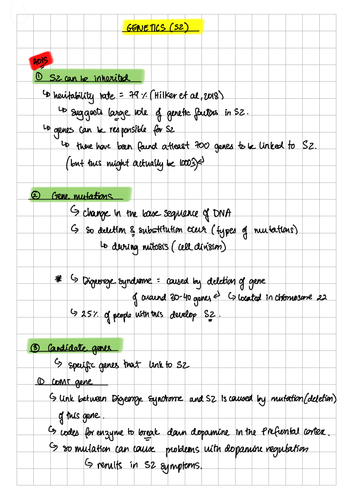 GENETICS (SZ)
AO1s
① SZ can be inherited
↳ heritability rate = 79% (Hilker et al, 2018)
↳ suggests large role of genetic factors in SZ.
↳ genes can be responsible for SZ
↳ there have been found atleast 700 genes to be linked to SZ.
(but this might actually be 1000s)
② Gene mutations
↳ change in the base sequence of DNA
↳ so deletion & substitution occur (types of mutations)
↳ during mitosis (cell division)
* ↳ Digeorge Syndrome = caused by deletion of gene
of around 30-40 genes ↳ located in chromosome 22
↳ 25% of people with this develop SZ.
③ Candidate genes
↳ specific genes that link to SZ
① COMT gene
↳ link between Digeorge Syndrome and SZ is caused by mutation (deletion)
of this gene.
↳ codes for enzyme to break down dopamine in the prefrontal cortex.
↳ so mutation can cause problems with dopamine regulation
↳ results in SZ symptoms.